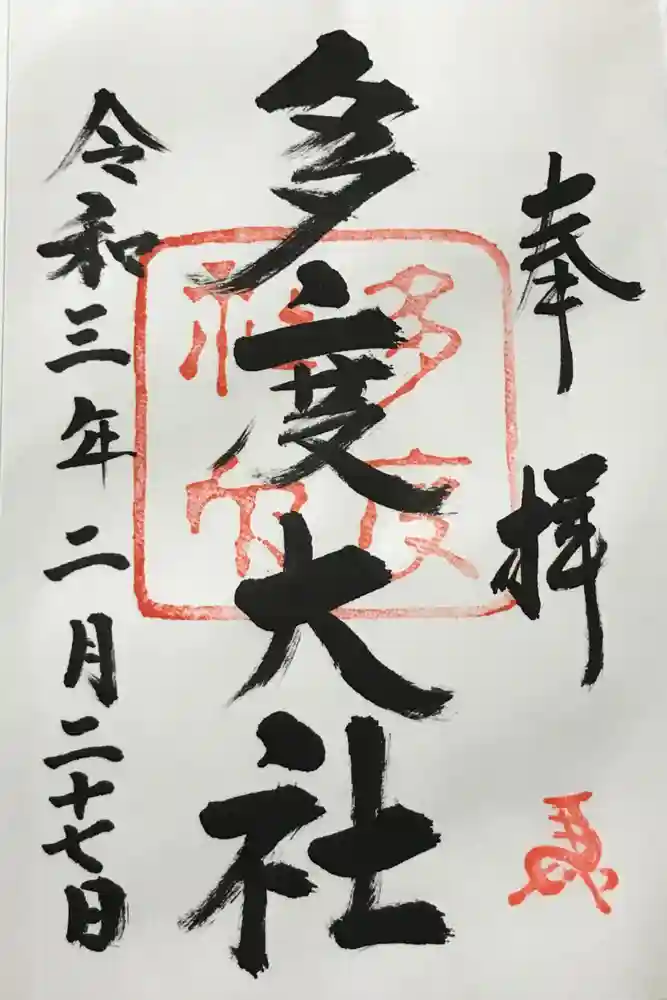 奉拝
多度大社
多度
社印
令和三年二月二十七日
馬